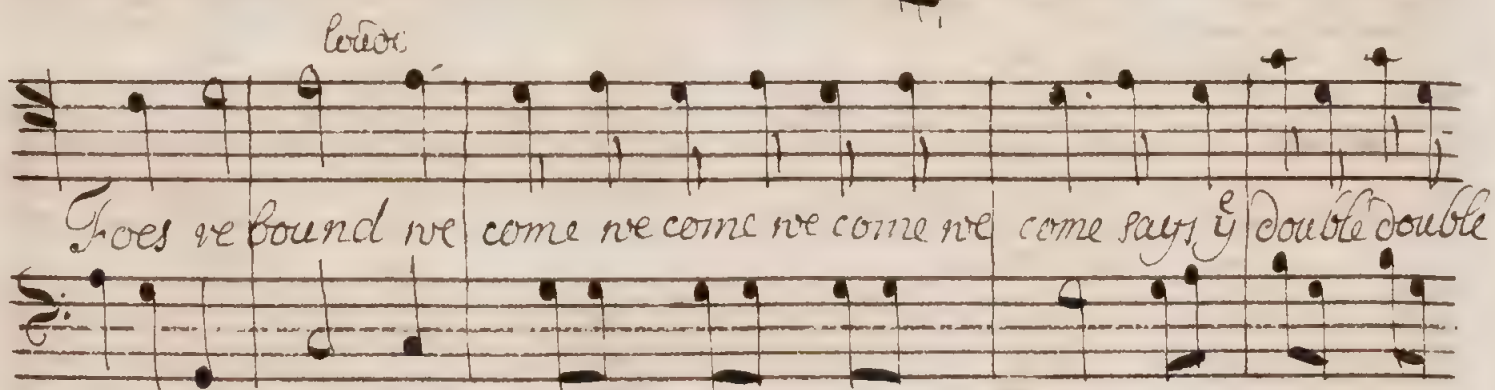 loud
Foes rebound we come we come we come we come says yᵉ double double